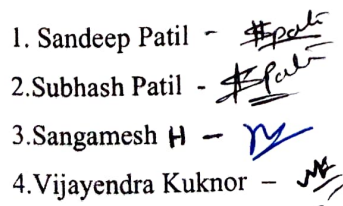 1. Sandeep Patil -
2.Subhash Patil -
3.Sangamesh H -
4.Vijayendra Kuknor -